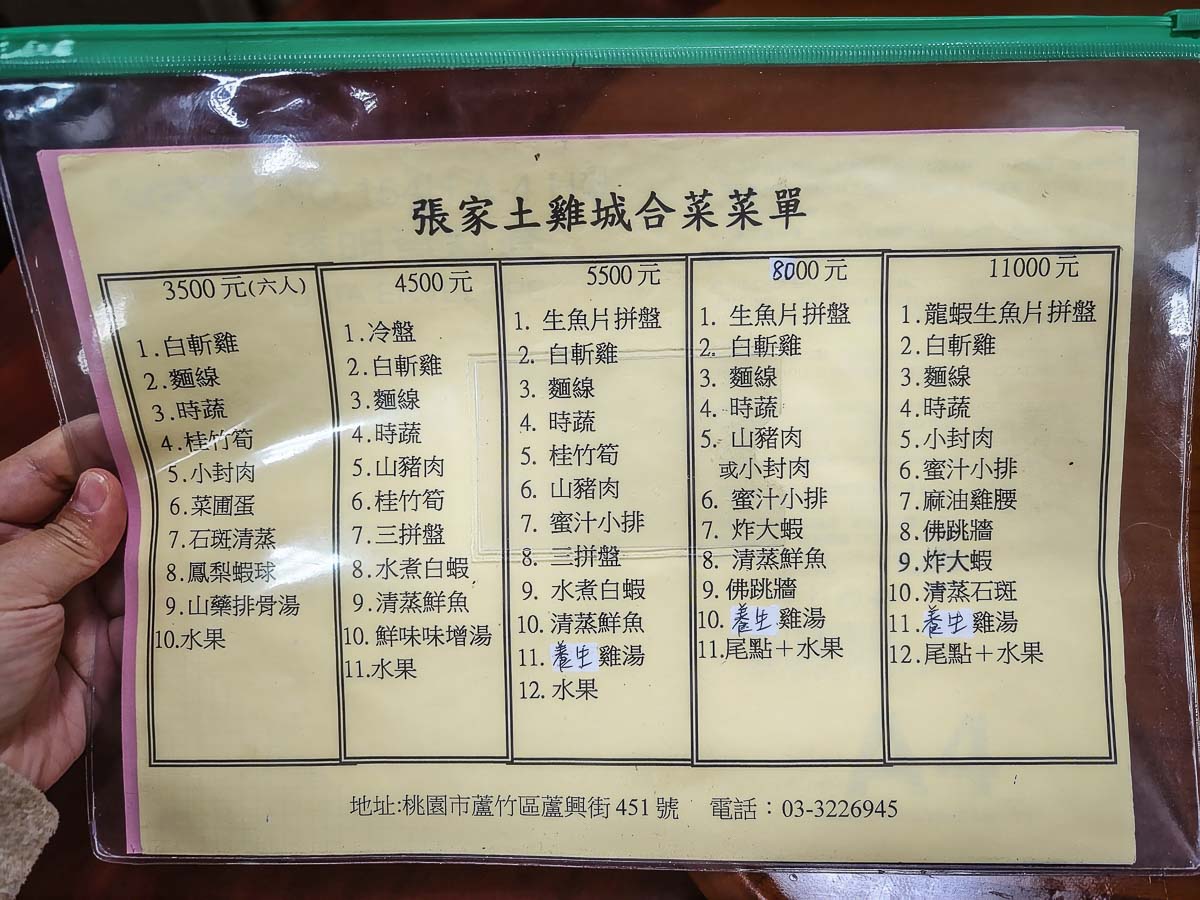 張家土雞城合菜菜單
3500元(六人)
1.白斬雞
2.麵線
3.時蔬
4.桂竹筍
5.小封肉
6.菜圃蛋
7.石斑清蒸
8.鳳梨蝦球
9.山藥排骨湯
10.水果
4500元
1.冷盤
2.白斬雞
3.麵線
4.時蔬
5.山豬肉
6.桂竹筍
7.三拼盤
8.水煮白蝦
9.清蒸鮮魚
10.鮮味味增湯
11.水果
5500元
1. 生魚片拼盤
2. 白斬雞
3. 麵線
4. 時蔬
5. 桂竹筍
6. 山豬肉
7. 蜜汁小排
8. 三拼盤
9. 水煮白蝦
10. 清蒸鮮魚
11. 養生雞湯
12. 水果
8000元
1. 生魚片拼盤
2. 白斬雞
3. 麵線
4. 時蔬
5. 山豬肉
或小封肉
6. 蜜汁小排
7. 炸大蝦
8. 清蒸鮮魚
9. 佛跳牆
10. 養生雞湯
11.尾點+水果
11000元
1.龍蝦生魚片拼盤
2.白斬雞
3.麵線
4.時蔬
5.小封肉
6.蜜汁小排
7.麻油雞腰
8.佛跳牆
9.炸大蝦
10.清蒸石斑
11.養生雞湯
12.尾點+水果
地址:桃園市蘆竹區蘆興街451號 電話：03-3226945